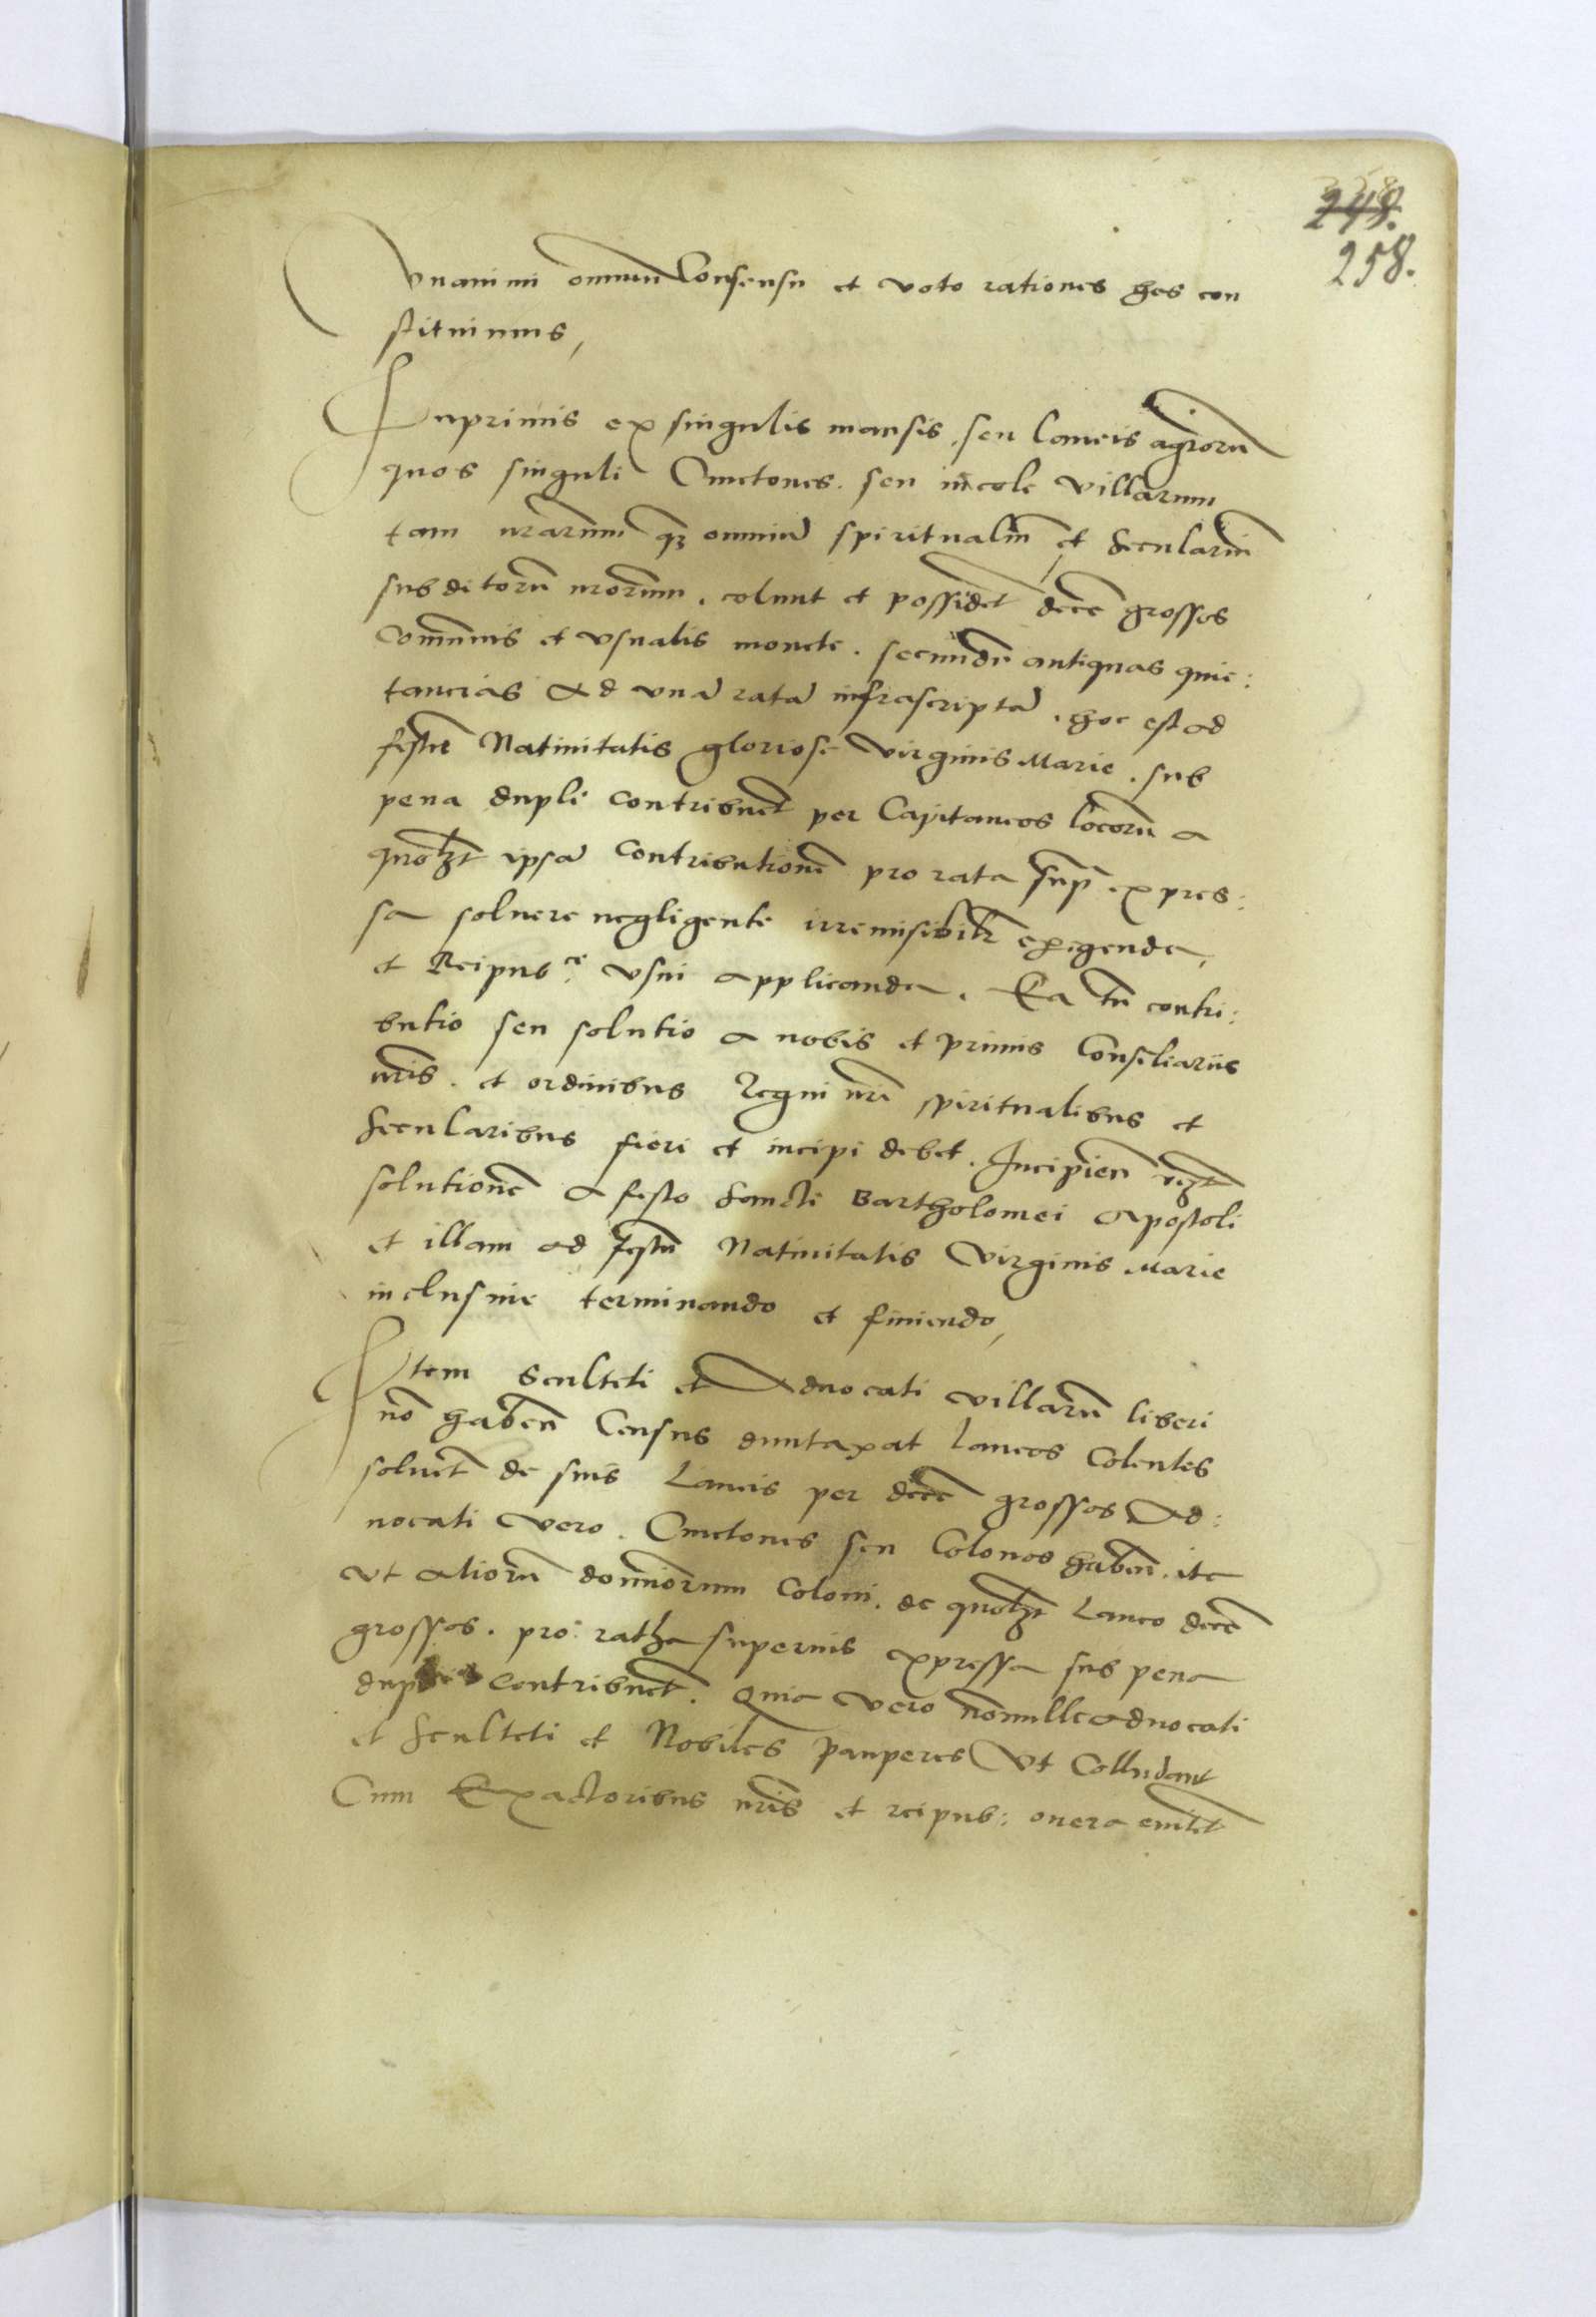 248.
258.
Vnanimi omnium Consensu et voto rationes has con
stituimus,
Inprimis ex singulis mansis, seu laneis agrorũ
quos singuli Cmetones. seu incole villarum
tam nr̃arum q̃ omniũ spiritualiũ et seculariũ
subditorũ nr̃orum. colunt et possidẽt decẽ grossos
Com̃unis et vsualis monete. secundũ antiquas quie:
tancias ad vnã ratã infrascriptã. hoc est ad
festũ Natiuitatis gloriose Virginis Marie. sub
pena dupli contribuẽt per Capitaneos locorũ a
quolz̃t ipsã contributionẽ pro rata sup̃ expres:
sa soluere negligente irremisibilr̃ exigenda,
et Reipub.ce vsui applicanda. Ea tñ contri:
butio seu solutio a nobis et primis Consiliariis
nr̃is. et ordinibus Regni nr̃i spiritualibus et
secularibus fieri et incipi debet. Incipieñ
solutionẽ a festo Sancti Bartholomei Apostoli
et illam ad festũ Natiuitatis Virginis Marie
inclusiue terminando et finiendo,
Item Sculteti et Aduocati villarũ liberi
nõ habeñ Census duntaxat laneos Colentes
soluẽt de suis Laneis per decẽ grossos Ad:
uocati vero. Cmetones seu Colonos habeñ. ita
vt aliorũ dominorum Coloni. de quolz̃t Laneo decẽ
grossos. pro ratha superius expressa sub pena
contribuẽt. Quia vero nonnulle aduocati
et Sculteti et Nobiles pauperes Vt Colludant
Cum Exactoribus nr̃is et reipub: onera euitẽt